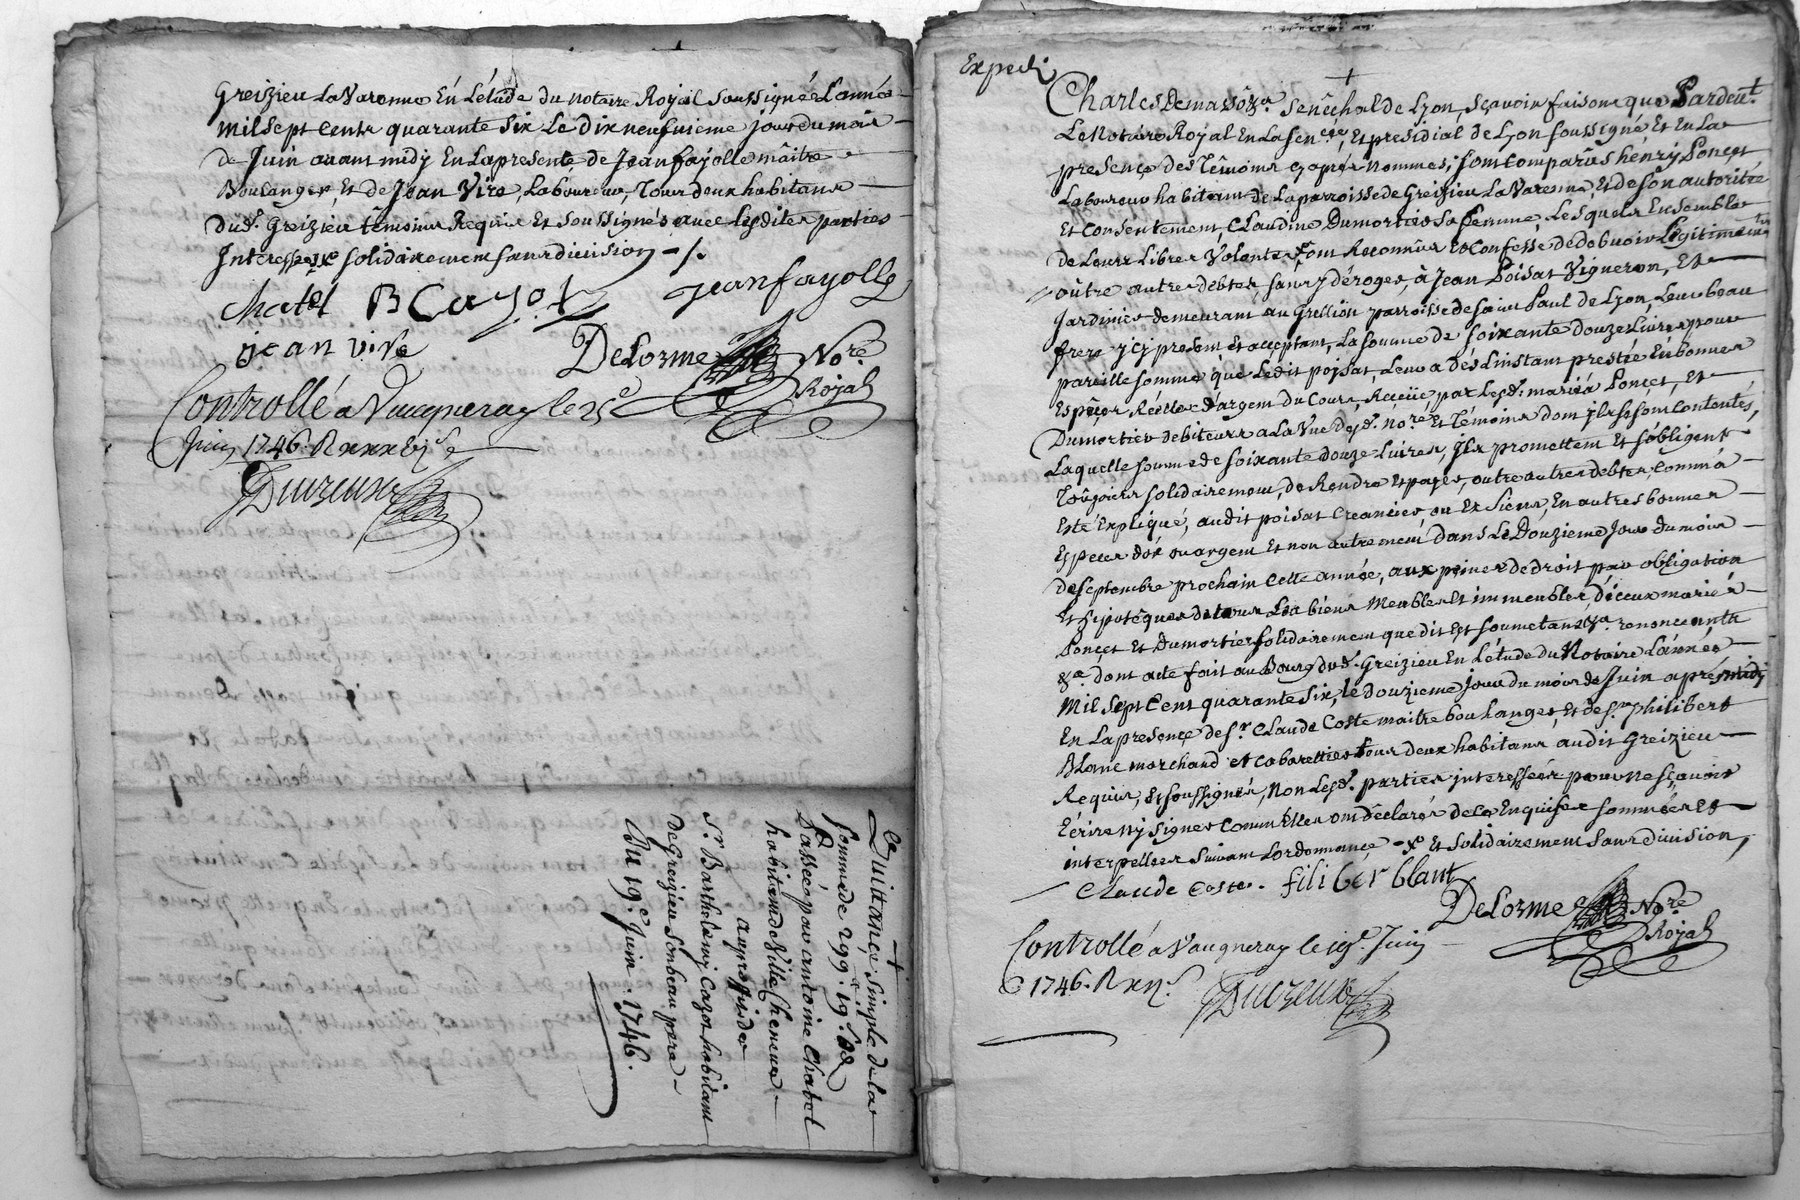 Greizieu La Varenne En L'étude du notaire Royal soussigné L'année
mil sept cents quarante six Le dix neufvieme jour du mois
de Juin avant midy En La presente de Jean fayolle mâitre
Boulanger, Et de Jean Vire, Laboureur, Tous deux habitans
dud. Greizieu temoins Requis Et soussignés avec lesdites parties
Interessées solidairement sans division
chatel B Cayot Jean fayolle
jean vire
DeLorme Nore
Royal
Controllé a Vaugneray le 25e
Juin 1746. R
Duvreux
Quittance simple de la
somme de 299.l 19.s 8d
Passée par antoine Chatel
habitant de Ville Cheneve
au proffit de
Sr Barthelemy Cayot habitant
de Greizieu son beau pere
Du 19e Juin 1746.
Expedi
Charles de massô &a. senêchal de Lyon, sçavoir faisons que Pardevt.
Le Notaire Royal En La senéee, Et presidial de Lyon soussigné Et En La
presence des Témoins cy aprés nommés; sont comparûs henry Ponçet
Laboureur habitant de La parroisse de Greizieu La Varenne Et de son autorité
Et Consentement, CLaudine Dumortier Sa femme Lesquels Ensemble
de Leurs Libres Volontés, ont Reconnûs Et Confessé de debvoir Légitimement
oûtre autres debtes, sans y déroger, à Jean Poisat Vigneron, Et
Jardinier demeurant au Greillion parroisse de saint Paul de Lyon, Leur beau
frere ycy present Et acceptant, La somme de soixante douze Livres pour
pareille somme que Ledit poisat, Leur a dés Linstant prestée En bonnes
Espêçes Réelles d'argent du Cours, Reçeüe par Lesd. mariés Ponçet, Et
Dumortier debiteurs a La Vüe desd. nore Et Témoins dont jls se sont Contentés,
Laquelle somme de soixante douze Livres, jls promettent Et s'obligent
Toûjours solidairement, de Rendre Et payer, outre autres debtes, comm'a
Esté Expliqué, audit poisat Creancier, ou Es Siens, En autres bonnes
Especes d'or ou argent Et non autrement dans Le Douzieme jour du mois
de septembre prochain Cette année, aux peines de droit par obligation
Et hipotêques de tous Les biens Meubles Et immeubles, d'iceux mariés
Ponçet Et Dumortier solidairement que dit Est soumetans &a. renonceants
&a. dont acte fait au Bourg dud. Greizieu En L'étude du Notaire L'année
mil sept Cent quarante six, le douzieme jour du mois de Juin aprés midy
En La presençe de sr. CLaude Coste maitre boulanger, Et de sr. philibert
BLanc marchand et cabarettier tous deux habitans audit Greizieu
Requis, Et soussignés, Non Lesd. parties interessées pour ne sçavoir
Ecrire ny signer Comm'Elles ont déclarés de ce Enquises sommées Et
interpellees suivant Lordonnançe Et solidairement sans division,
CLaude Coste. filiber blant
DeLorme Nore
Royal
Controllé a Vaugneray le 19e. Juin
1746. R
Duvreux